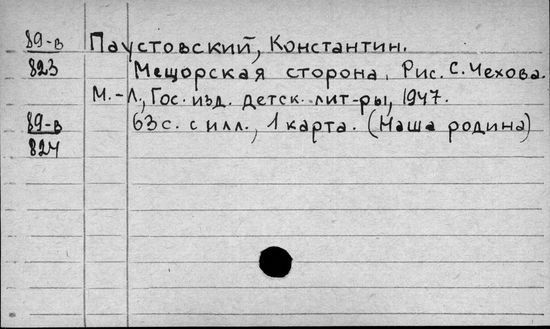 89-в Паустовский, Константин.
823 Мещорская сторона. Рис. С. Чехова.
М.-Л., Гос. изд. детск. лит-ры, 1947.
89-в 63 с. с илл., 1 карта. (Наша родина)
824